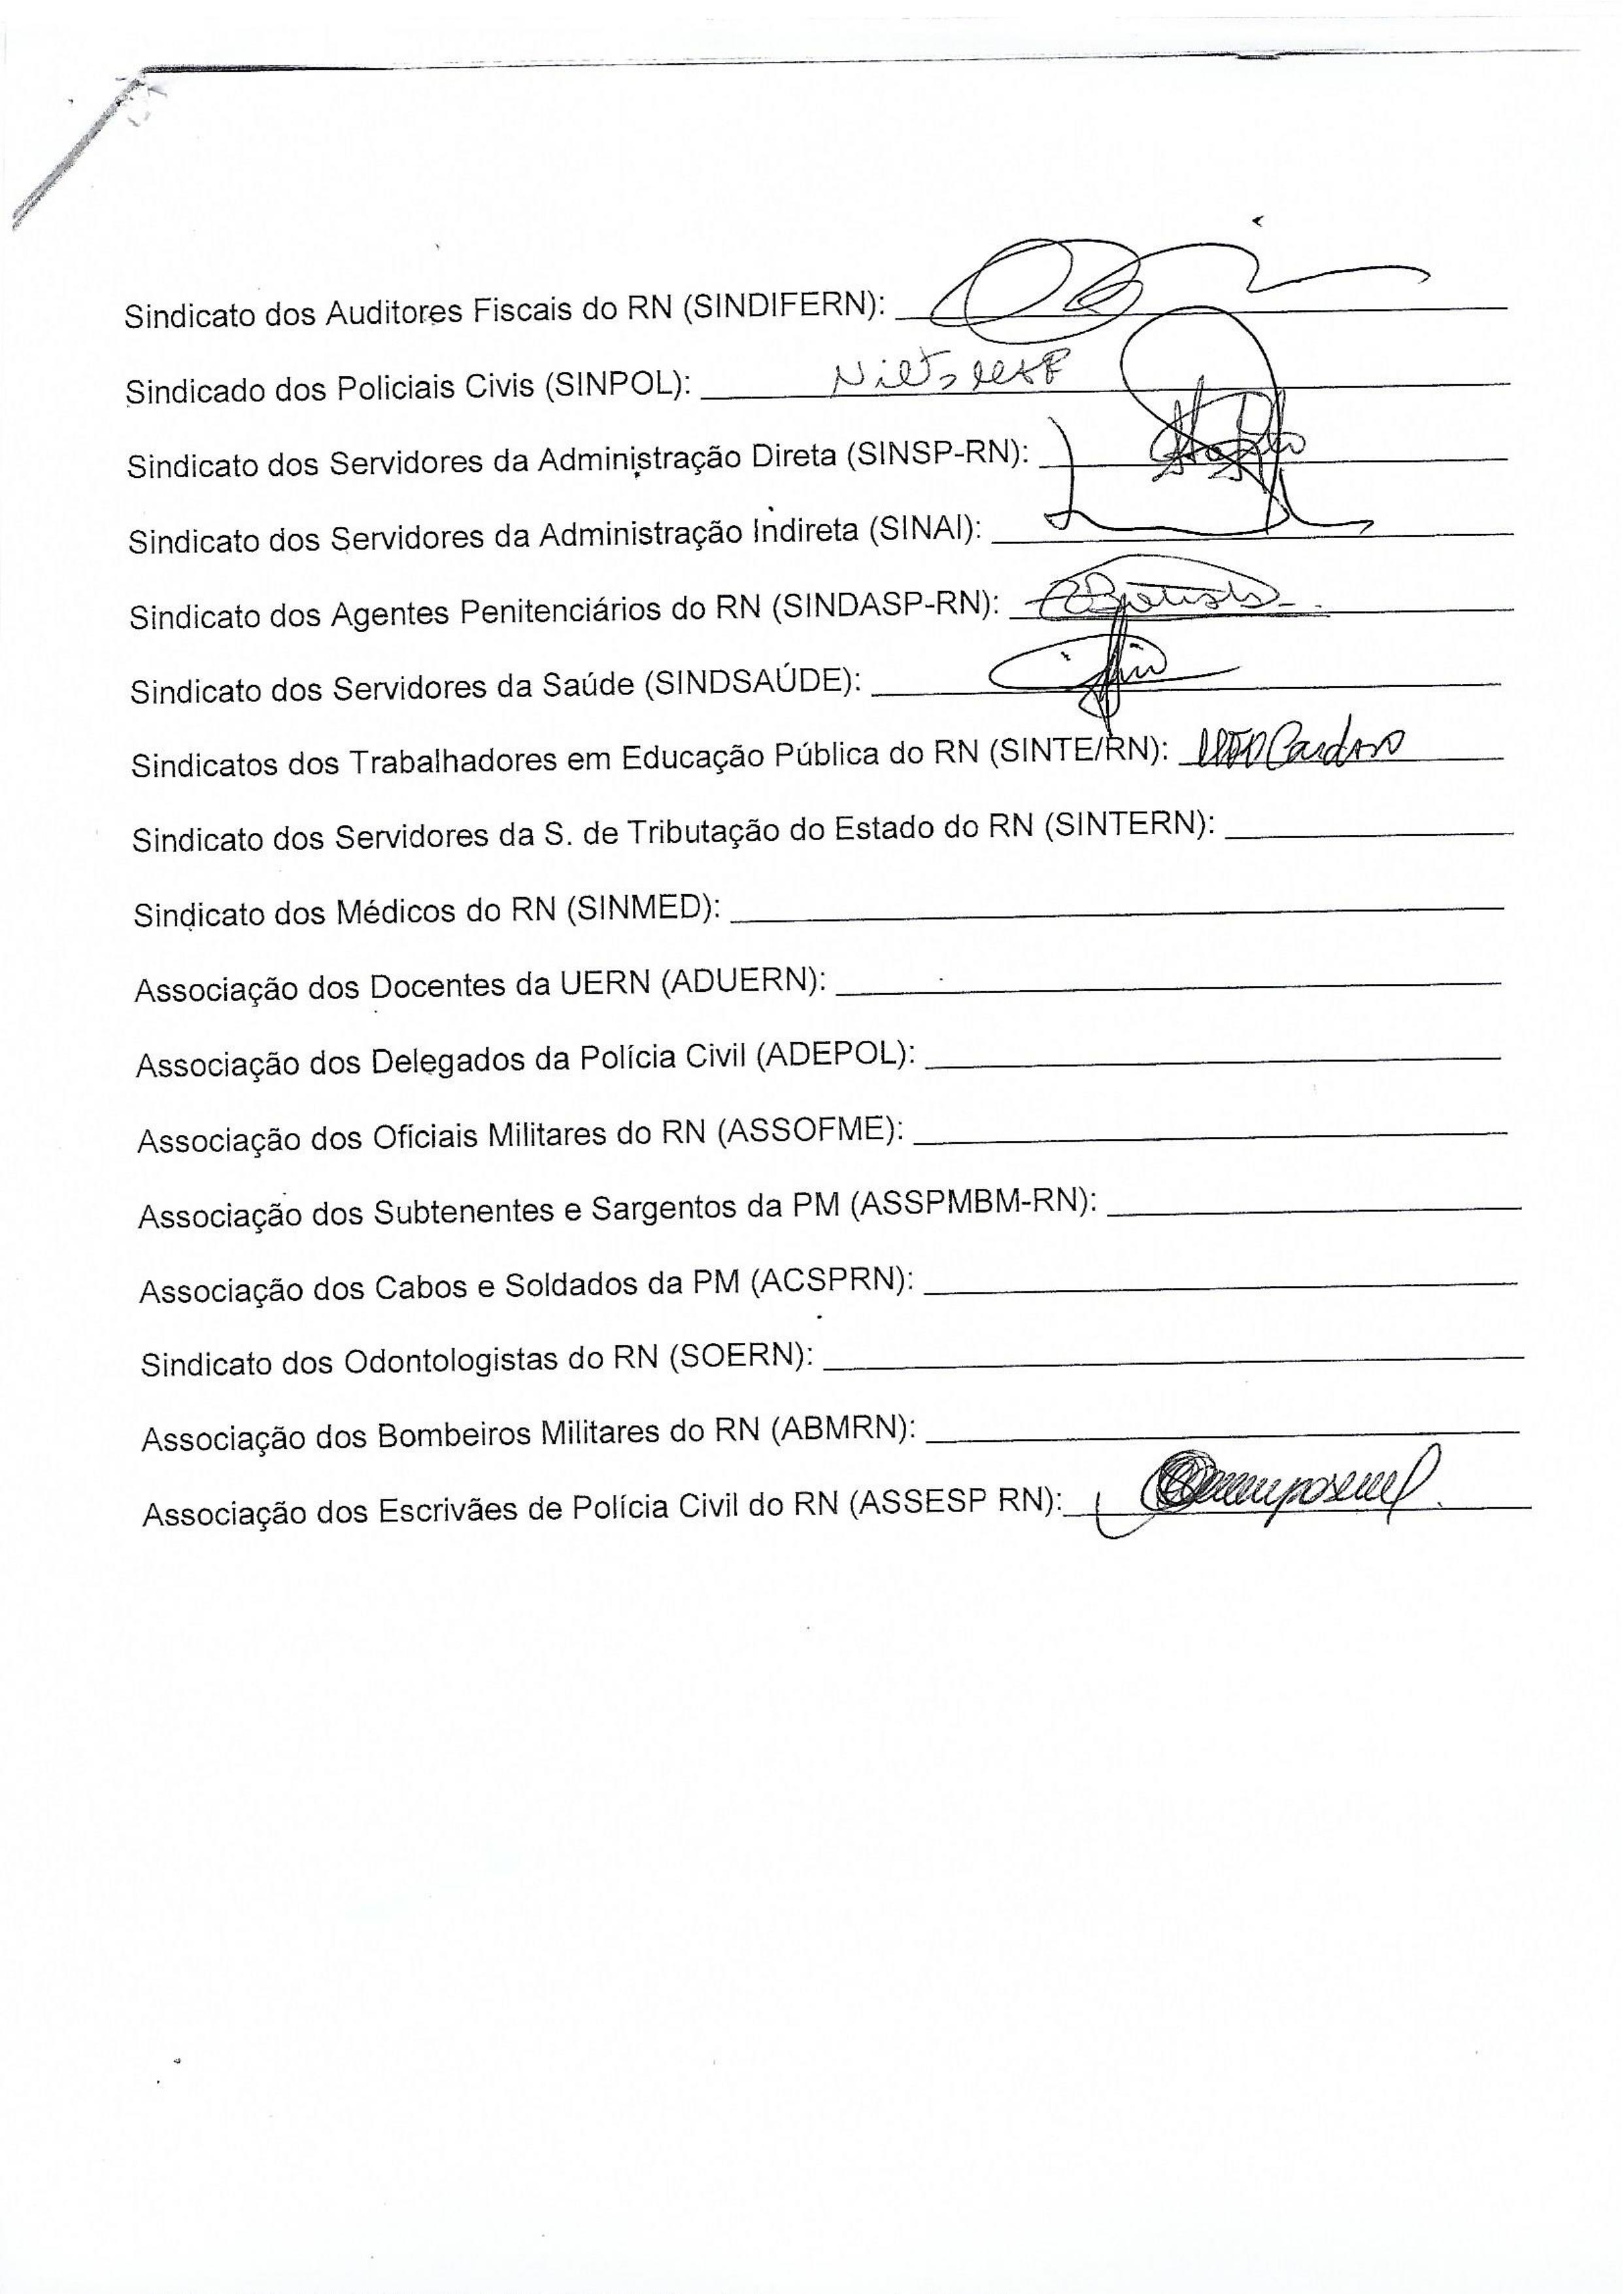 Sindicato dos Auditores Fiscais do RN (SINDIFERN):
Sindicado dos Policiais Civis (SINPOL):
Sindicato dos Servidores da Administração Direta (SINSP-RN):
Sindicato dos Servidores da Administração Indireta (SINAI):
Sindicato dos Agentes Penitenciários do RN (SINDASP-RN):
Sindicato dos Servidores da Saúde (SINDSAÚDE):
Sindicatos dos Trabalhadores em Educação Pública do RN (SINTE/RN): Cardoso
Sindicato dos Servidores da S. de Tributação do Estado do RN (SINTERN):
Sindicato dos Médicos do RN (SINMED):
Associação dos Docentes da UERN (ADUERN):
Associação dos Delegados da Polícia Civil (ADEPOL):
Associação dos Oficiais Militares do RN (ASSOFME):
Associação dos Subtenentes e Sargentos da PM (ASSPMBM-RN):
Associação dos Cabos e Soldados da PM (ACSPRN):
Sindicato dos Odontologistas do RN (SOERN):
Associação dos Bombeiros Militares do RN (ABMRN):
Associação dos Escrivães de Polícia Civil do RN (ASSESP RN):